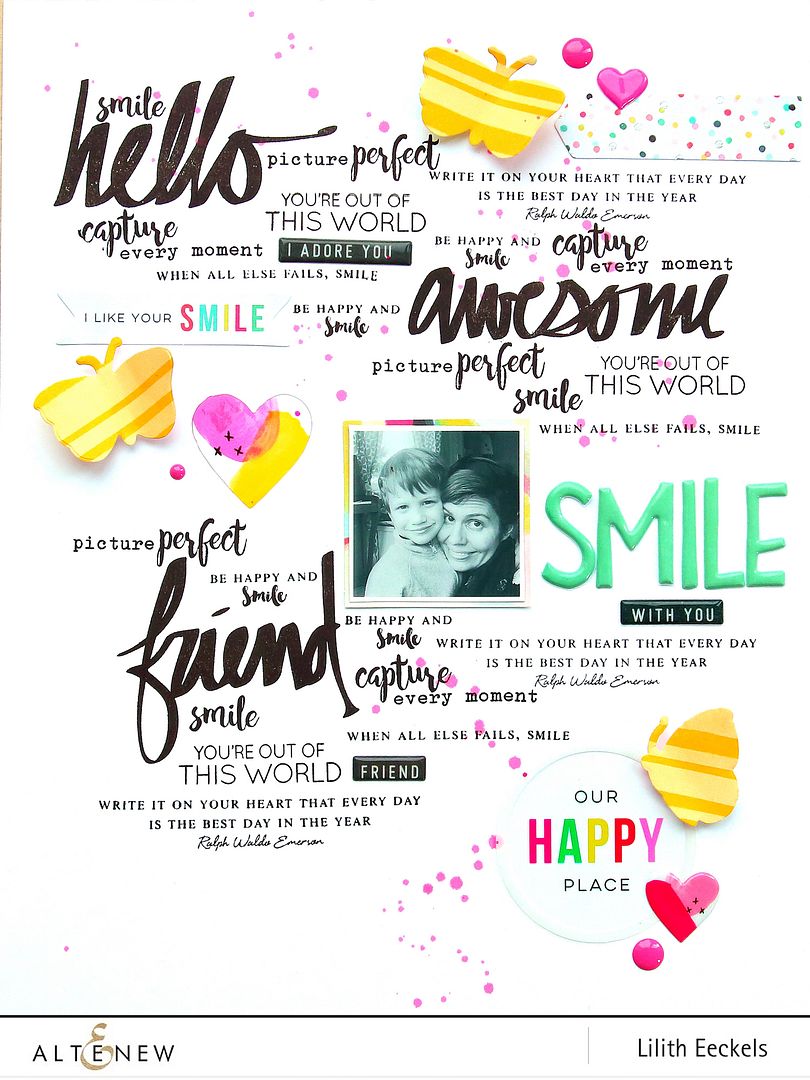 smile
hello
picture perfect
WRITE IT ON YOUR HEART THAT EVERY DAY
IS THE BEST DAY IN THE YEAR
Ralph Waldo Emerson
YOU'RE OUT OF
THIS WORLD
capture
every moment
I ADORE YOU
WHEN ALL ELSE FAILS, SMILE
BE HAPPY AND
smile
capture
every moment
I LIKE YOUR SMILE
BE HAPPY AND
smile
awesome
picture perfect
smile
YOU'RE OUT OF
THIS WORLD
WHEN ALL ELSE FAILS, SMILE
SMILE
WITH YOU
picture perfect
BE HAPPY AND
smile
friend
BE HAPPY AND
smile
WRITE IT ON YOUR HEART THAT EVERY DAY
IS THE BEST DAY IN THE YEAR
Ralph Waldo Emerson
capture
every moment
smile
WHEN ALL ELSE FAILS, SMILE
YOU'RE OUT OF
THIS WORLD
FRIEND
WRITE IT ON YOUR HEART THAT EVERY DAY
IS THE BEST DAY IN THE YEAR
Ralph Waldo Emerson
OUR
HAPPY
PLACE
ALTENEW
Lilith Eeckels